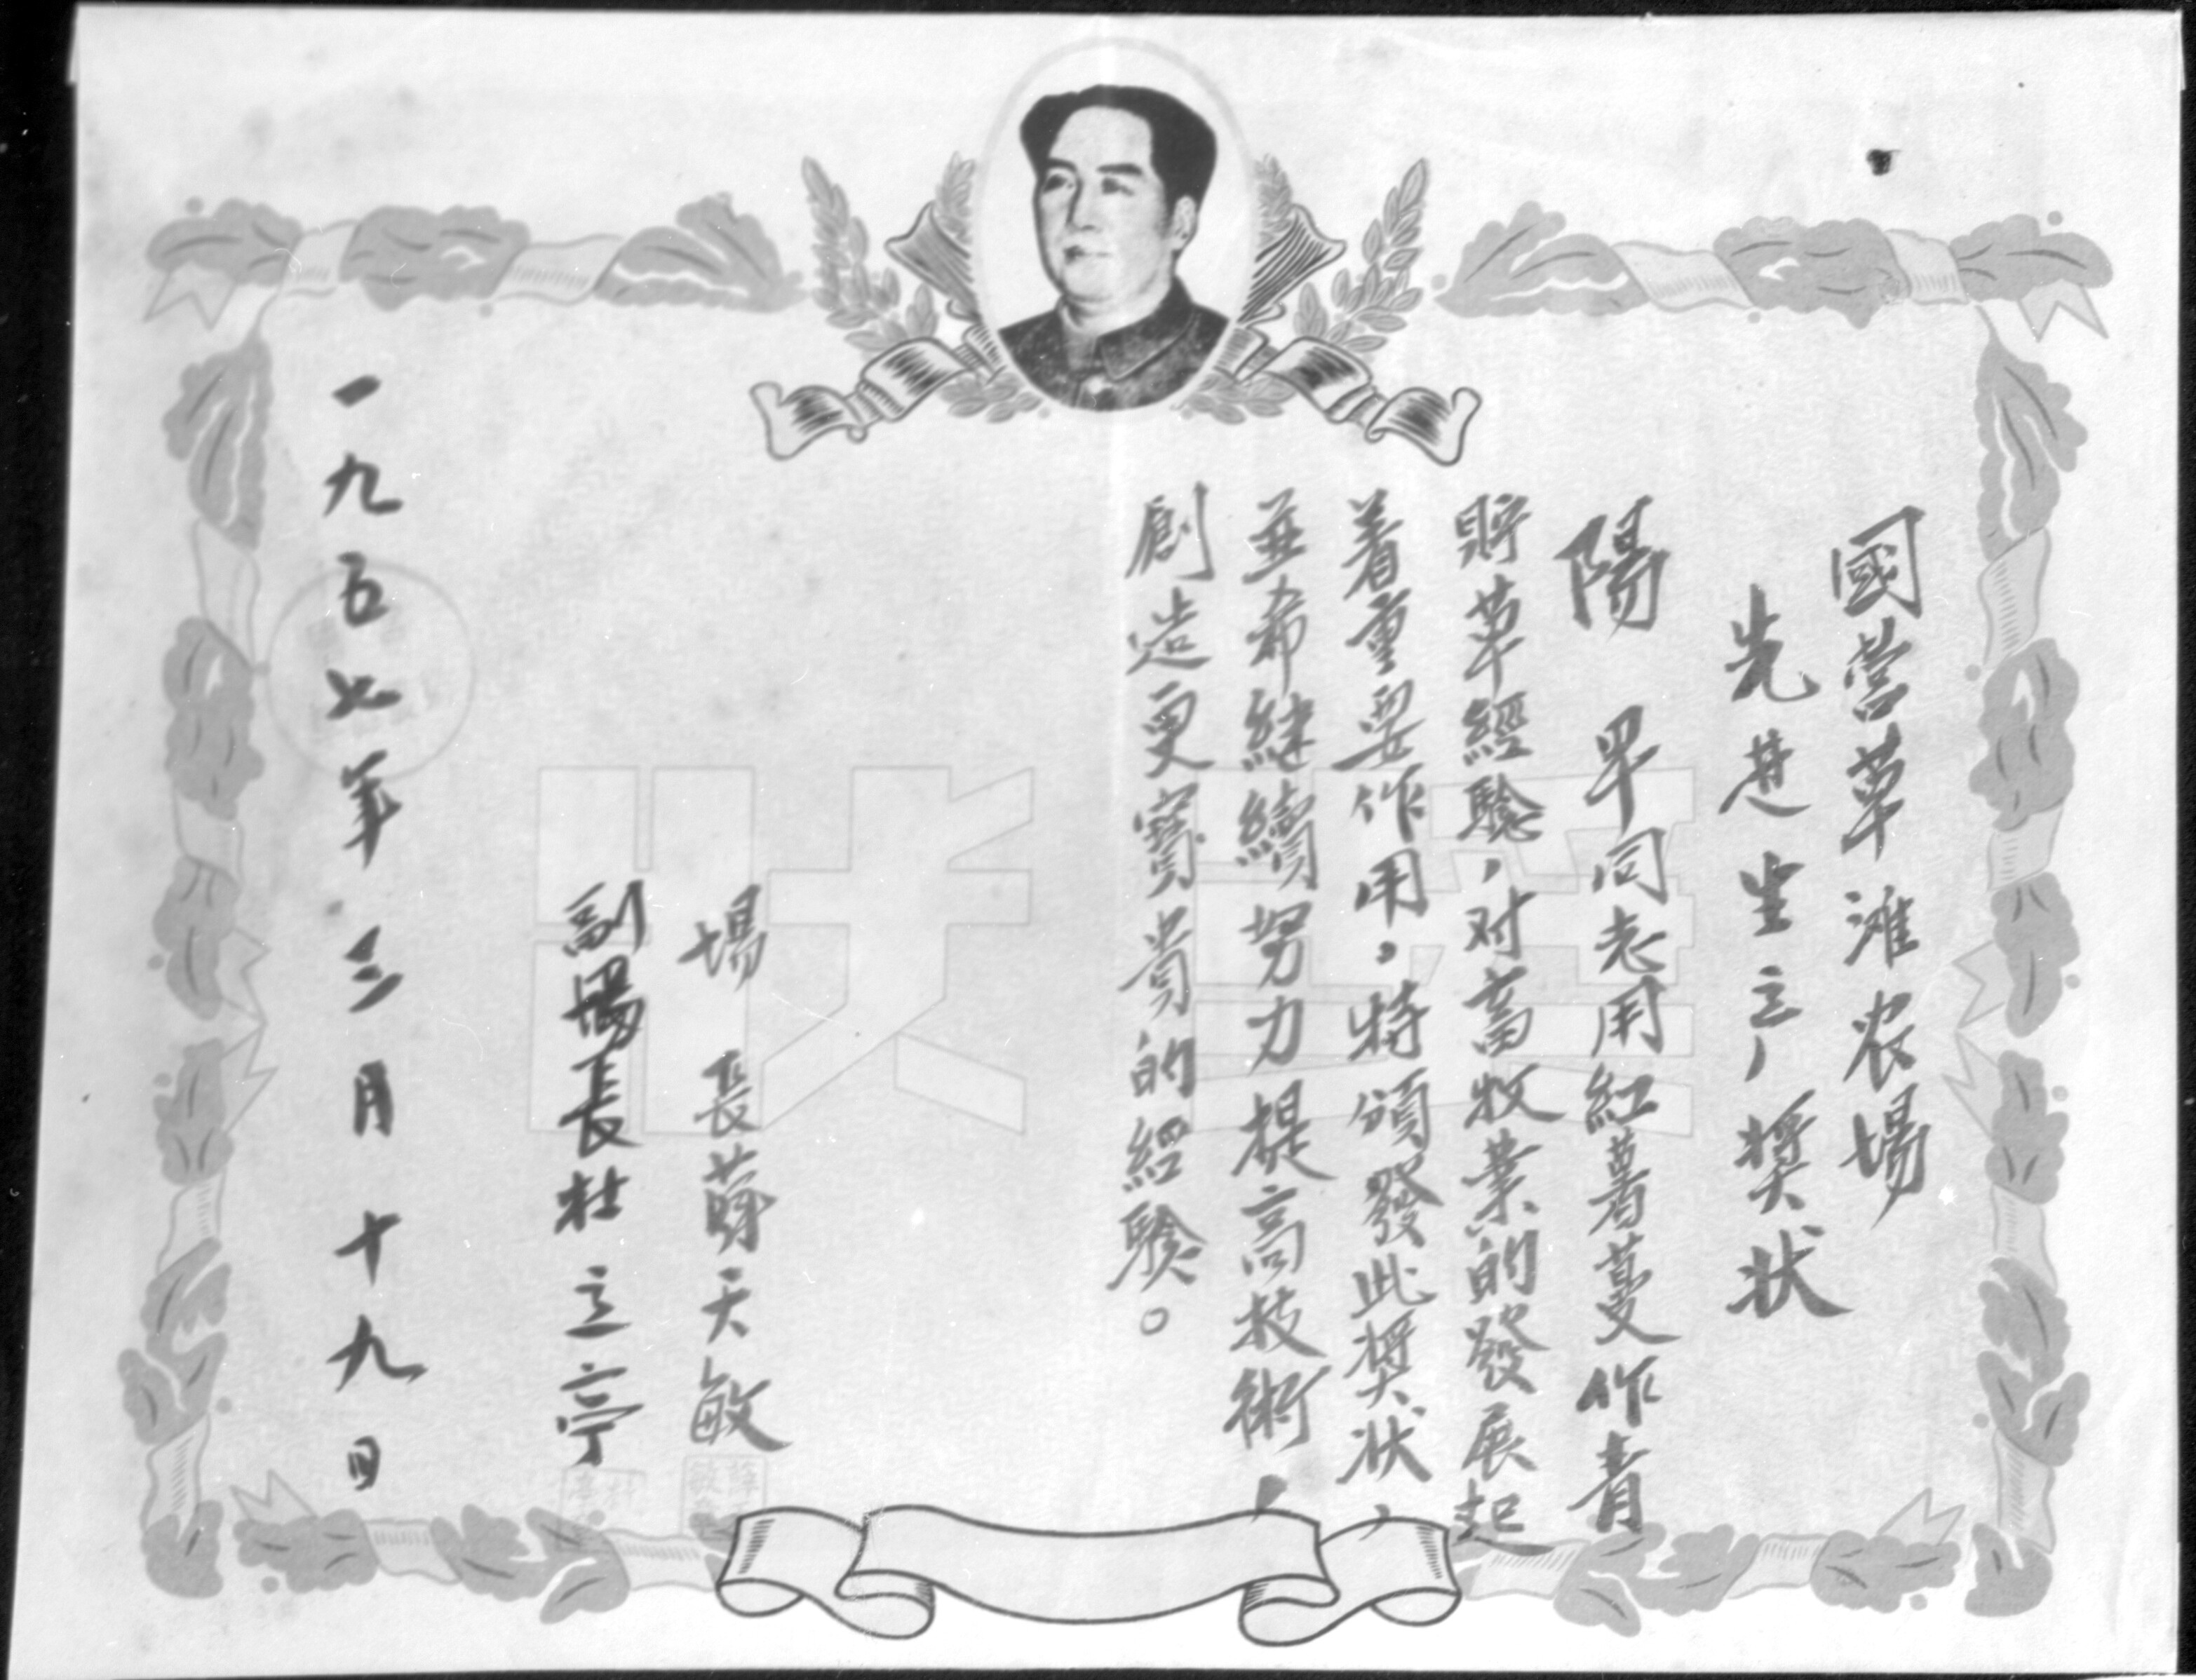 國营草滩农場
先進生产獎状
陽早同志用紅薯蔓作青
貯草經驗，对畜牧業的發展起
着重要作用，特頒發此獎状，
並希継續努力提高技術，
創造更寳貴的經驗。
場長薛天敏
副場長杜立亭
一九五七年三月十九日
獎狀